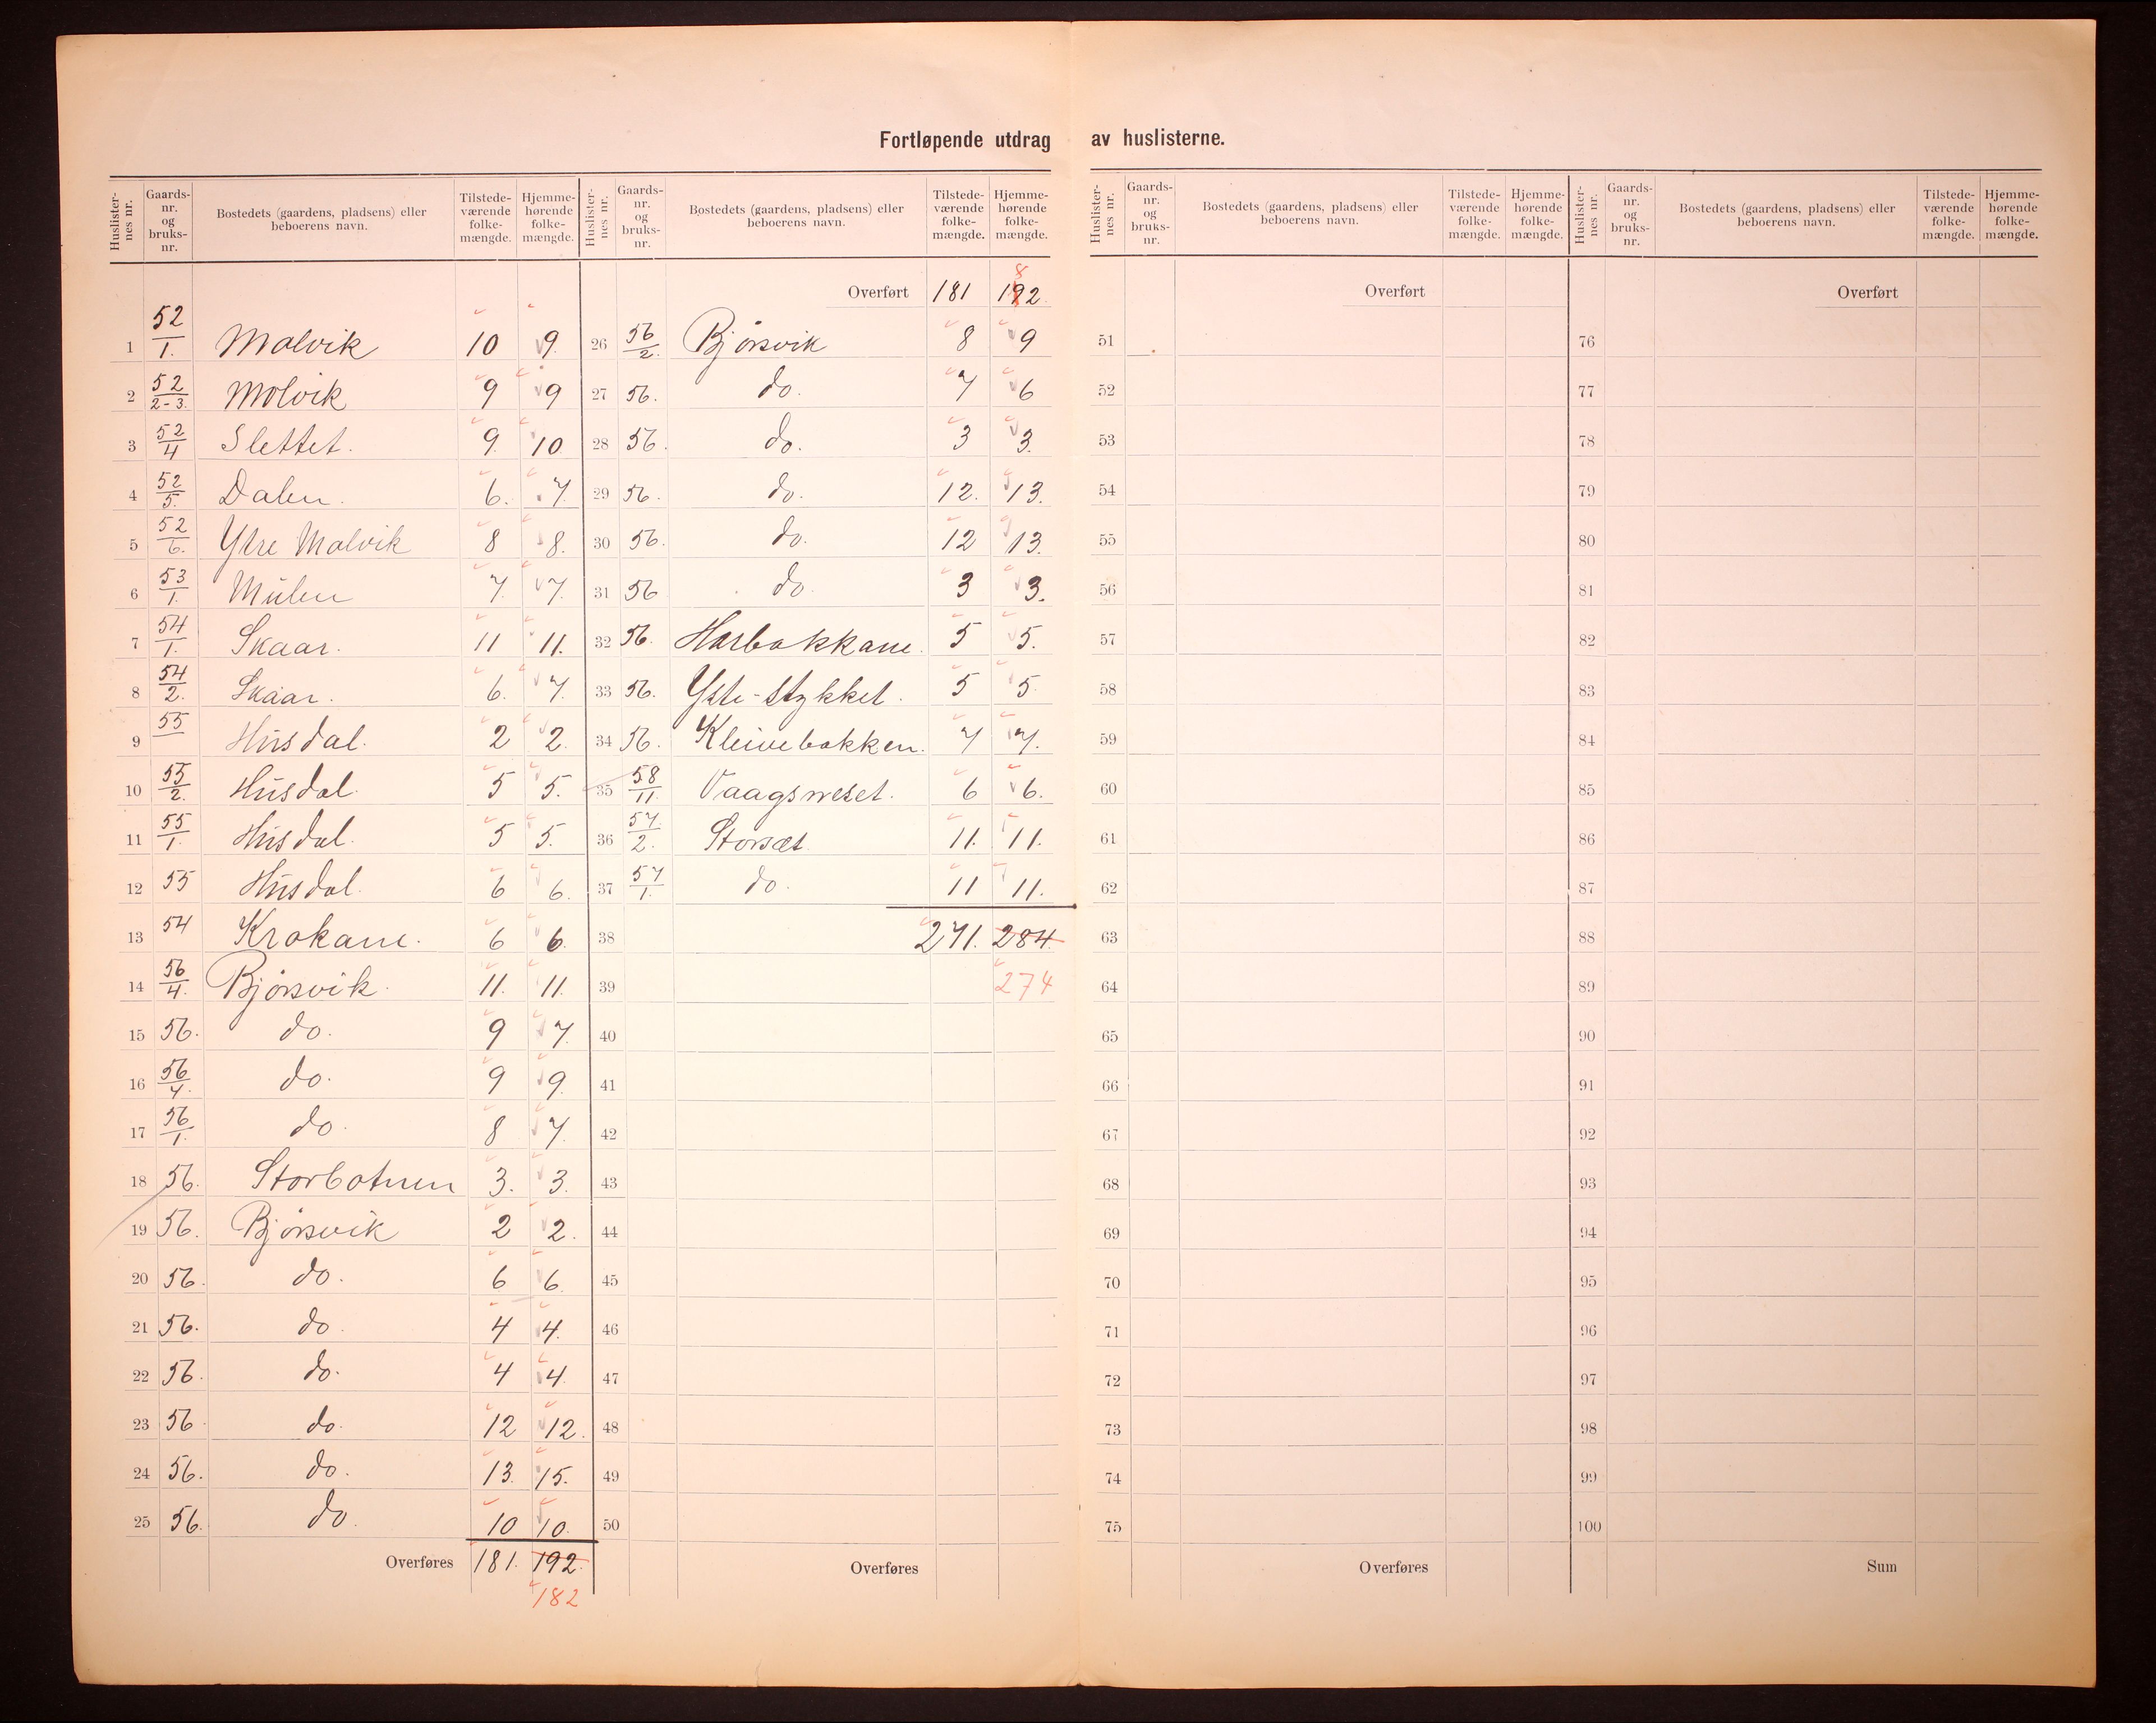 Fortløpende utdrag av huslisterne.
Huslister-nes nr. | Gaards-nr. og bruks-nr. | Bostedets (gaardens, pladsens) eller beboerens navn. | Tilstede-værende folke-mængde. | Hjemme-hørende folke-mængde.
1 52/1. Molvik 10 9.
2 52/2-3. Molvik 9 9
3 52/4 Slettet. 9. 10
4 52/5. Dalen. 6. 7.
5 52/6. Ytre Molvik 8 8.
6 53/1. Mülen 7. 7.
7 54/1. Skaar. 11 11.
8 54/2. Skaar. 6. 7.
9 55 Husdal. 2 2.
10 55/2. Husdal. 5 5.
11 55/1. Husdal. 5 5.
12 55 Husdal. 6 6.
13 54 Krokane. 6 6.
14 56/4. Bjørsvik. 11. 11.
15 56. do. 9 7.
16 56/7. do. 9 9.
17 56/1. do. 8 7.
18 56. Storbotnen 3. 3.
19 56. Bjørsvik 2 2.
20 56. do. 6 6.
21 56. do. 4 4.
22 56. do. 4 4.
23 56 do. 12 12.
24 56. do. 13. 15.
25 56. do. 10 10.
Overføres 181. 192.
182
Huslister-nes nr. | Gaards-nr. og bruks-nr. | Bostedets (gaardens, pladsens) eller beboerens navn. | Tilstede-værende folke-mængde. | Hjemme-hørende folke-mængde.
8
Overført 181 192.
26 56/2. Bjørsvik 8 9
27 56. do. 7 6
28 56. do. 3 3.
29 56. do. 12. 13.
30 56. do. 12 13.
31 56 do. 3 3.
32 56. Harbakkane. 5 5.
33 56. Yste-stykket. 5 5.
34 56. Kleivebakken. 7 7.
35 58/11. Vaagsneset. 6 6.
36 57/2. Storsæt. 11. 11.
37 57/1. do. 11 11.
38 271. 284.
39 274
40
41
42
43
44
45
46
47
48
49
50
Overføres
Huslister-nes nr. | Gaards-nr. og bruks-nr. | Bostedets (gaardens, pladsens) eller beboerens navn. | Tilstede-værende folke-mængde. | Hjemme-hørende folke-mængde.
Overført
51
52
53
54
55
56
57
58
59
60
61
62
63
64
65
66
67
68
69
70
71
72
73
74
75
Overføres
Huslister-nes nr. | Gaards-nr. og bruks-nr. | Bostedets (gaardens, pladsens) eller beboerens navn. | Tilstede-værende folke-mængde. | Hjemme-hørende folke-mængde.
Overført
76
77
78
79
80
81
82
83
84
85
86
87
88
89
90
91
92
93
94
95
96
97
98
99
100
Sum